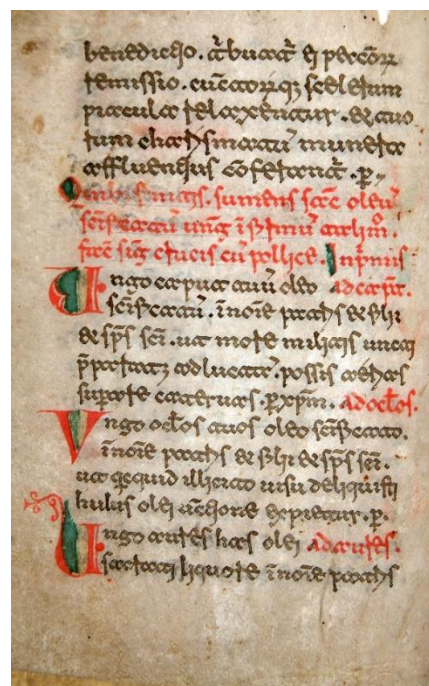 benedictio. t̃buat̃ ei peccõꝝ
remissio. cũctorꝝq; scelerum
piacula relaxentur. & tuo
rum charismatũ munera
affluentius cõferant̃. p̱
finitis. sumens sac̃e oleũ
sc̃ificatũ ung̃ ĩfirmũ
fac̃e sig̃ crucis cũ pollice. Inp̃mis
Ungo caput tuũ oleo ad cap̃t.
sc̃ificatũ. ĩnoĩe patris & filii
& sp̃s sc̃i. ut more militis uncti
p̃paratus ad luctã. possis aereas
supare cateruas. p̱ xp̃m. ad oc̃los.
Ungo oc̃los tuos oleo sc̃ificato.
ĩnoĩe patris & filii & sp̃s sc̃i.
ut qcquid illicito uisu deliquisti
huius olei ũctione expietur. p̱.
Ungo aures has olei ad aures.
sacrati liquore ĩnoĩe patris